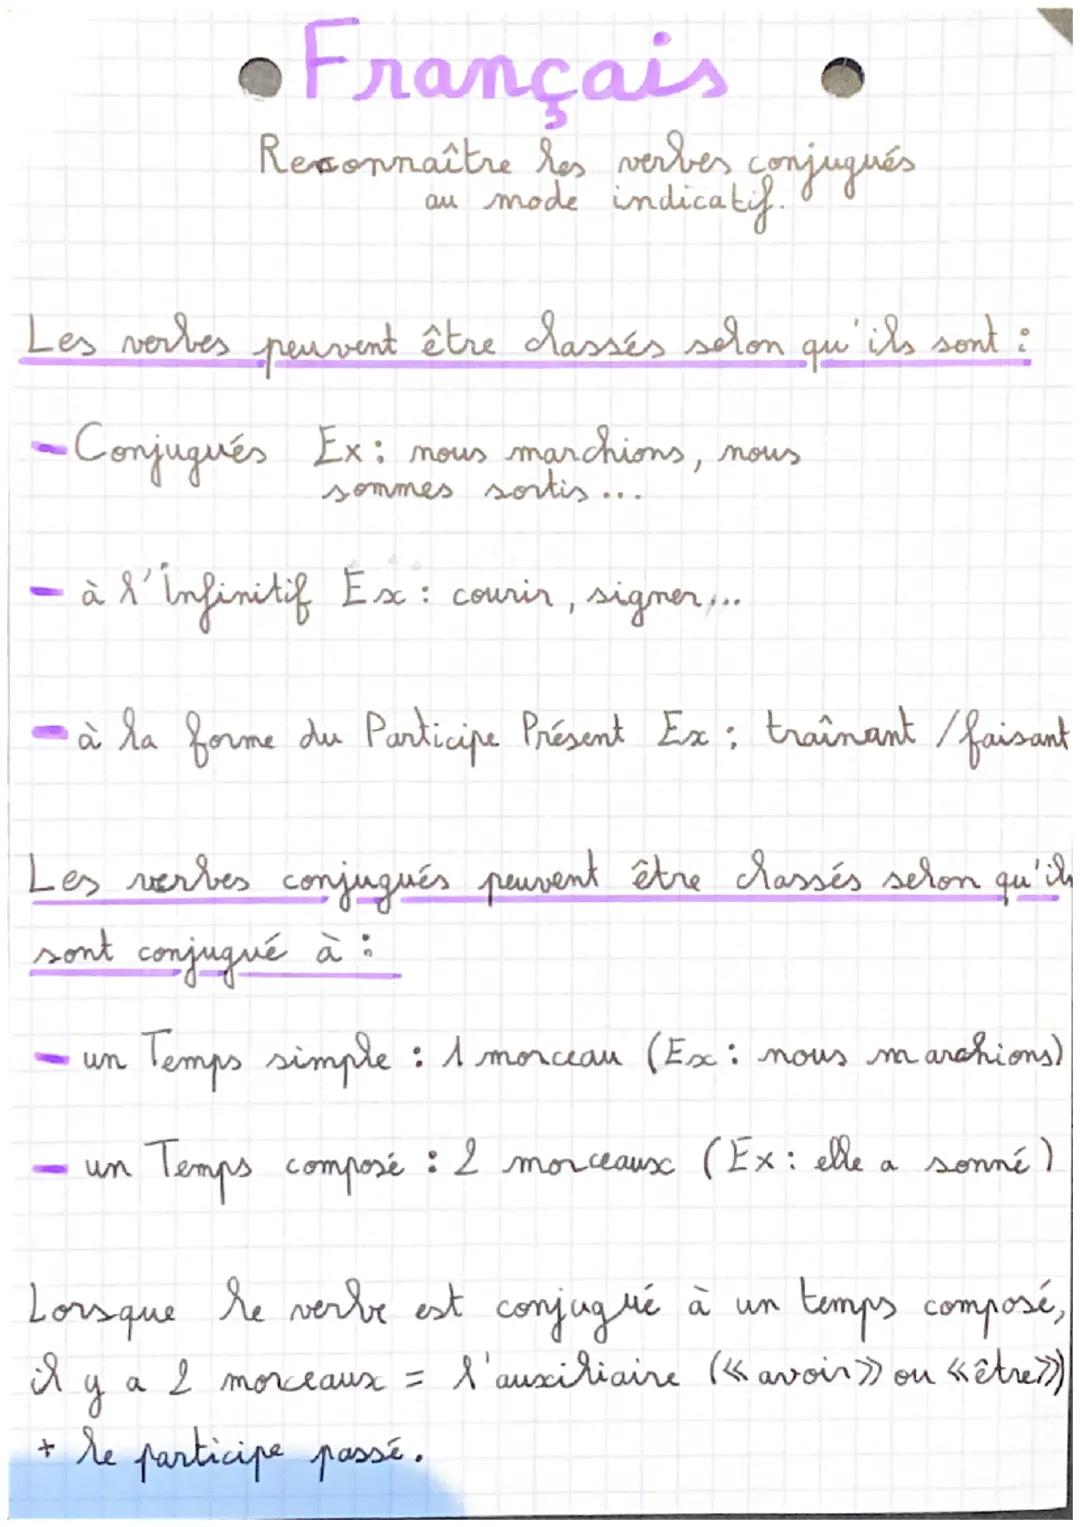 Français
Reconnaître les verbes conjugués
au mode indicatif.
Les verbes peuvent être classés selon qu'ils sont :
- Conjugués Ex : nous marchions, nous
sommes sortis ...
- à l'Infinitif Ex : courir, signer,...
- à la forme du Participe Présent Ex : traînant / faisant
Les verbes conjugués peuvent être classés selon qu'ils
sont conjugué à :
- un Temps simple : 1 morceau (Ex : nous marchions)
- un Temps composé : 2 morceaux (Ex : elle a sonné)
Lorsque le verbe est conjugué à un temps composé,
il y a 2 morceaux = l'auxiliaire (« avoir » ou « être »)
+ le participe passé.